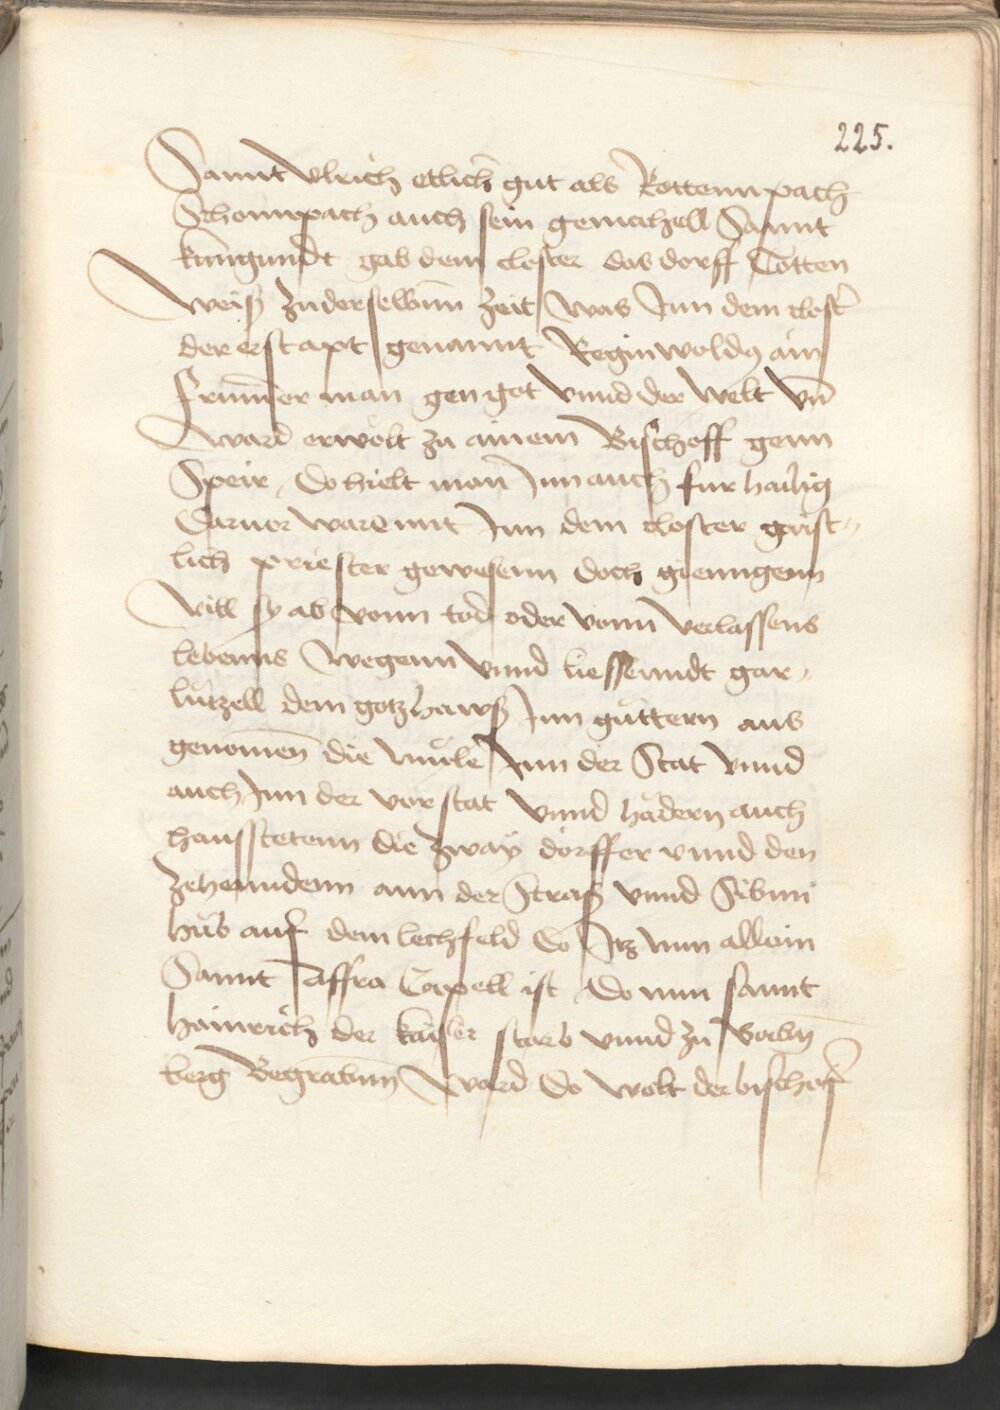 225.
Sannt Vlrich etlich gut als Rottennpach
Schonnpach auch sein gemahell Sannt
kunngundt gab dem closter das dorff Totten
Weiß zu derselbenn Zeit Was Inn dem closter
der erst apt genannt Reginwoldus ain
frumer man gen got vnnd der Welt vnd
Ward erwölt zu ainem Bischoff genn
Speir, Do hielt man Inn auch fur hailig
Daruor waren nit Inn dem closter gaist-
lich priester gewesenn doch gienngenn
Vill sy ab vonn tod oder vonn Verlassens
lebenns Wegenn Vnnd liessenndt gar
lützell dem gotzhawß Inn güttern aus
genomen die müle Inn der Stat Vnnd
auch Inn der vorstat Vnnd hädern auch
hausstetenn die Zway dörffer vnnd den
Zehenndenn ann der Straß vnnd Sibnn
hüb auf dem lechfeld do Itz nun allain
Sannt Affra Capell ist Do nun sannt
Hainrich der kaiser starb vnnd zu Baben
berg Begrabenn Ward Do wolt der bischof